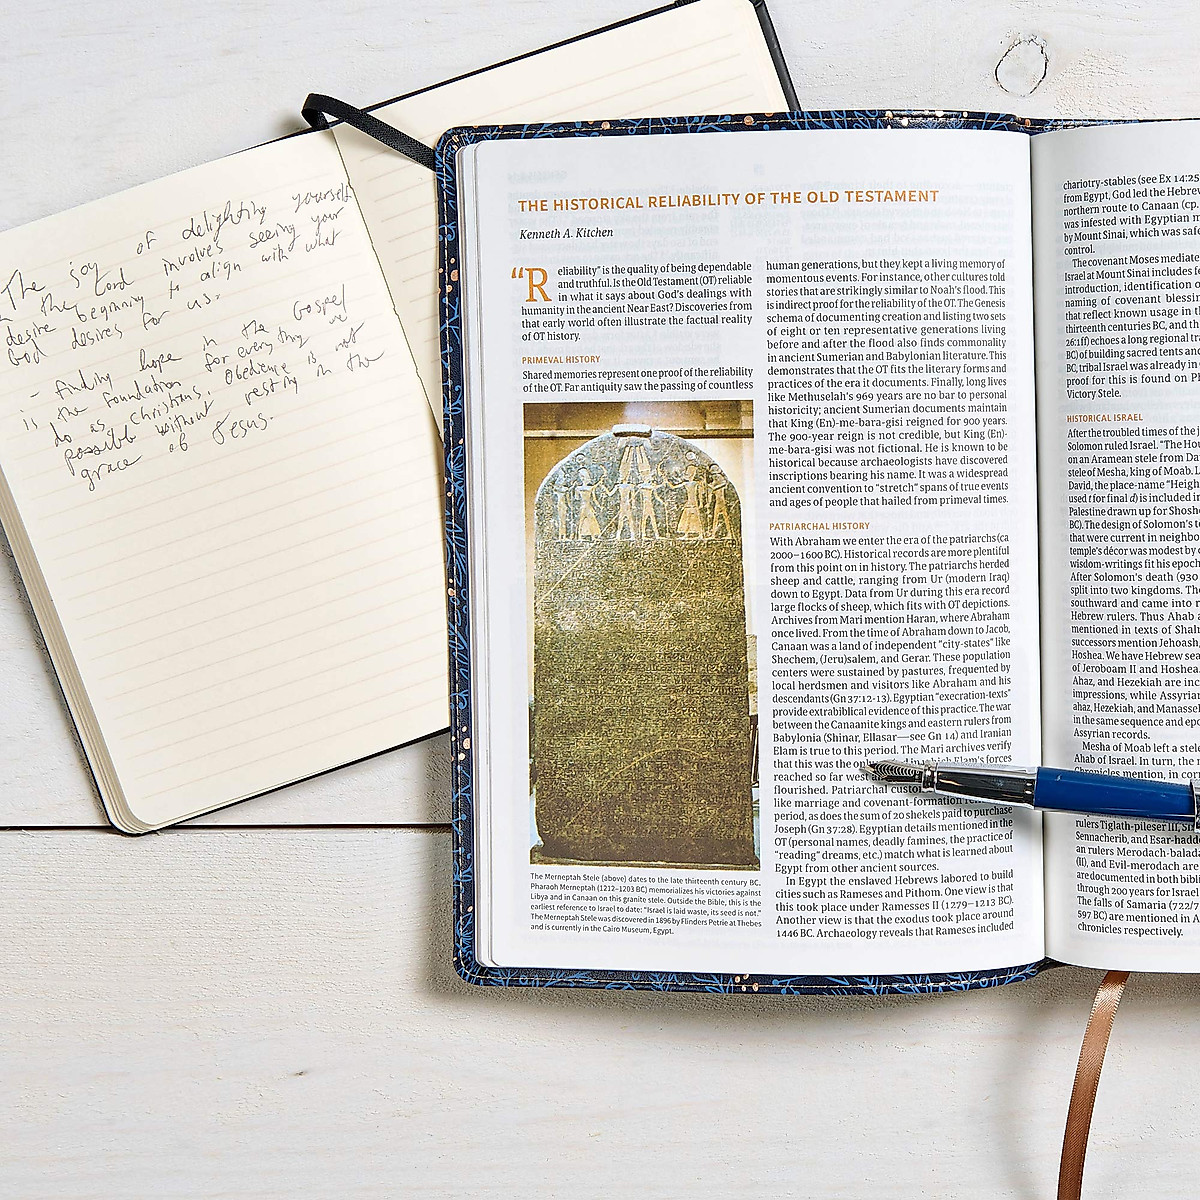 The joy of delighting yourself
in the Lord involves seeing your
desire beginning to align with what
God desires for us.
- finding hope in the Gospel
is the foundation for everything we
do as Christians. Obedience is not
possible without resting in the
grace of Jesus.
THE HISTORICAL RELIABILITY OF THE OLD TESTAMENT
Kenneth A. Kitchen
“Reliability” is the quality of being dependable
and truthful. Is the Old Testament (OT) reliable
in what it says about God’s dealings with
humanity in the ancient Near East? Discoveries from
that early world often illustrate the factual reality
of OT history.
PRIMEVAL HISTORY
Shared memories represent one proof of the reliability
of the OT. Far antiquity saw the passing of countless
The Merneptah Stele (above) dates to the late thirteenth century BC.
Pharaoh Merneptah (1212–1203 BC) memorializes his victories against
Libya and in Canaan on this granite stele. Outside the Bible, this is the
earliest reference to Israel to date: “Israel is laid waste, its seed is not.”
The Merneptah Stele was discovered in 1896 by Flinders Petrie at Thebes
and is currently in the Cairo Museum, Egypt.
human generations, but they kept a living memory of
momentous events. For instance, other cultures told
stories that are strikingly similar to Noah’s flood. This
is indirect proof for the reliability of the OT. The Genesis
schema of documenting creation and listing two sets
of eight or ten representative generations living
before and after the flood also finds commonality
in ancient Sumerian and Babylonian literature. This
demonstrates that the OT fits the literary forms and
practices of the era it documents. Finally, long lives
like Methuselah’s 969 years are no bar to personal
historicity; ancient Sumerian documents maintain
that King (En)-me-bara-gisi reigned for 900 years.
The 900-year reign is not credible, but King (En)-
me-bara-gisi was not fictional. He is known to be
historical because archaeologists have discovered
inscriptions bearing his name. It was a widespread
ancient convention to “stretch” spans of true events
and ages of people that hailed from primeval times.
PATRIARCHAL HISTORY
With Abraham we enter the era of the patriarchs (ca
2000–1600 BC). Historical records are more plentiful
from this point on in history. The patriarchs herded
sheep and cattle, ranging from Ur (modern Iraq)
down to Egypt. Data from Ur during this era record
large flocks of sheep, which fits with OT depictions.
Archives from Mari mention Haran, where Abraham
once lived. From the time of Abraham down to Jacob,
Canaan was a land of independent “city-states” like
Shechem, (Jeru)salem, and Gerar. These population
centers were sustained by pastures, frequented by
local herdsmen and visitors like Abraham and his
descendants (Gn 37:12-13). Egyptian “execration-texts”
provide extrabiblical evidence of this practice. The war
between the Canaanite kings and eastern rulers from
Babylonia (Shinar, Ellasar—see Gn 14) and Iranian
Elam is true to this period. The Mari archives verify
that this was the in which Elam’s forces
reached so far west
flourished. Patriarchal
like marriage and covenant-formation
period, as does the sum of 20 shekels paid to purchase
Joseph (Gn 37:28). Egyptian details mentioned in the
OT (personal names, deadly famines, the practice of
“reading” dreams, etc.) match what is learned about
Egypt from other ancient sources.
In Egypt the enslaved Hebrews labored to build
cities such as Rameses and Pithom. One view is that
this took place under Ramesses II (1279–1213 BC).
Another view is that the exodus took place around
1446 BC. Archaeology reveals that Rameses included
chariotry-stables (see Ex 14:25
from Egypt, God led the Hebrew
northern route to Canaan (cp.
was infested with Egyptian m
by Mount Sinai, which was safe
control.
The covenant Moses mediate
Israel at Mount Sinai includes fe
introduction, identification o
naming of covenant blessin
that reflect known usage in t
thirteenth centuries BC, and th
26:1ff) echoes a long regional tra
BC) of building sacred tents and
BC, tribal Israel was already in
proof for this is found on Ph
Victory Stele.
HISTORICAL ISRAEL
After the troubled times of the j
Solomon ruled Israel. “The Hou
on an Aramean stele from Da
stele of Mesha, king of Moab. L
David, the place-name “Heigh
used t for final d) is included in
Palestine drawn up for Shosh
BC). The design of Solomon’s t
that were current in neighbo
temple’s décor was modest by c
wisdom-writings fit his epoch
After Solomon’s death (930
split into two kingdoms. The
southward and came into r
Hebrew rulers. Thus Ahab a
mentioned in texts of Shaln
successors mention Jehoash,
Hoshea. We have Hebrew sea
of Jeroboam II and Hoshea.
Ahaz, and Hezekiah are inc
impressions, while Assyrian
ahaz, Hezekiah, and Manasseh
in the same sequence and epo
Assyrian records.
Mesha of Moab left a stele
Ahab of Israel. In turn, the r
Chronicles mention, in cor
rulers Tiglath-pileser III, Sh
Sennacherib, and Esar-hadde
an rulers Merodach-balada
(II), and Evil-merodach are
are documented in both bibli
through 200 years for Israel
The falls of Samaria (722/7
597 BC) are mentioned in A
chronicles respectively.